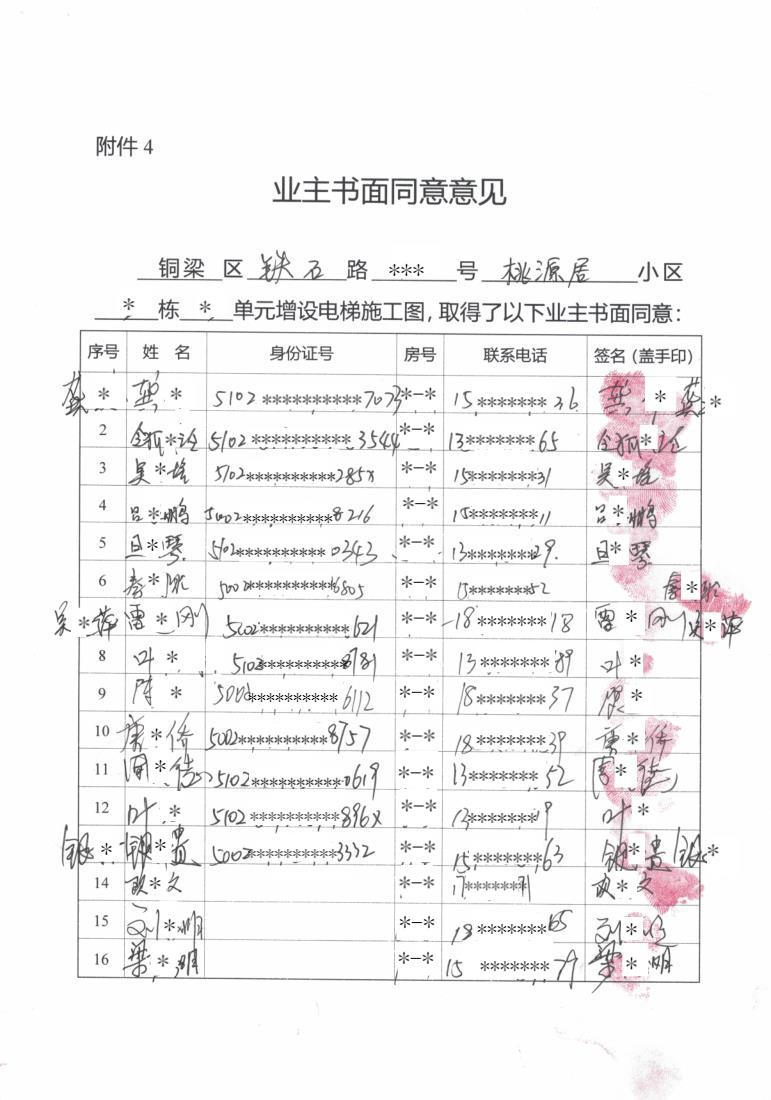 附件 4
业主书面同意意见
铜梁 区 铁石 路 *** 号 桃源居 小区
* 栋 * 单元增设电梯施工图，取得了以下业主书面同意：
序号 姓 名 身份证号 房号 联系电话 签名（盖手印）
龚 * 龚 * 5102 **********7073 *-* 15******* 36 龚 * 龚 *
2 令狐*谂 5102 ********** 3544 *-* 13*******65 令狐*谂
3 吴*培 5102**********285x *-* 15*******31 吴*培
4 吕*鹏 5002**********8216 *-* 15*******11 吕*鹏
5 旦*琴 5102********** 0343 *-* 13*******29 旦*琴
6 李* 5002**********6805 *-* 15*******52
吴*萍 雷*刚 5002**********1621 *-* 18*******18 雷*刚 吴*萍
8 叶* 5102**********8781 *-* 13*******89 叶*
9 陈* 500**********6112 *-* 18*******37
10 唐*侨 5002**********8757 *-* 18*******39 唐*侨
11 周* 5102**********0619 *-* 13*******52 周*
12 叶* 5102**********896x *-* 13*******9 叶*
银* 银*贵 5002**********3332 *-* 15*******63 银*贵 银*
14 *文 *-* 17*******71 *文
15 刘*明 *-* 18*******65 刘*
16 梁*明 *-* 15 *******79 梁*明